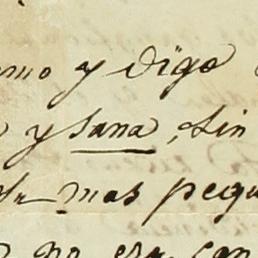 y digo
y sana, sin
mas pequ
no era can